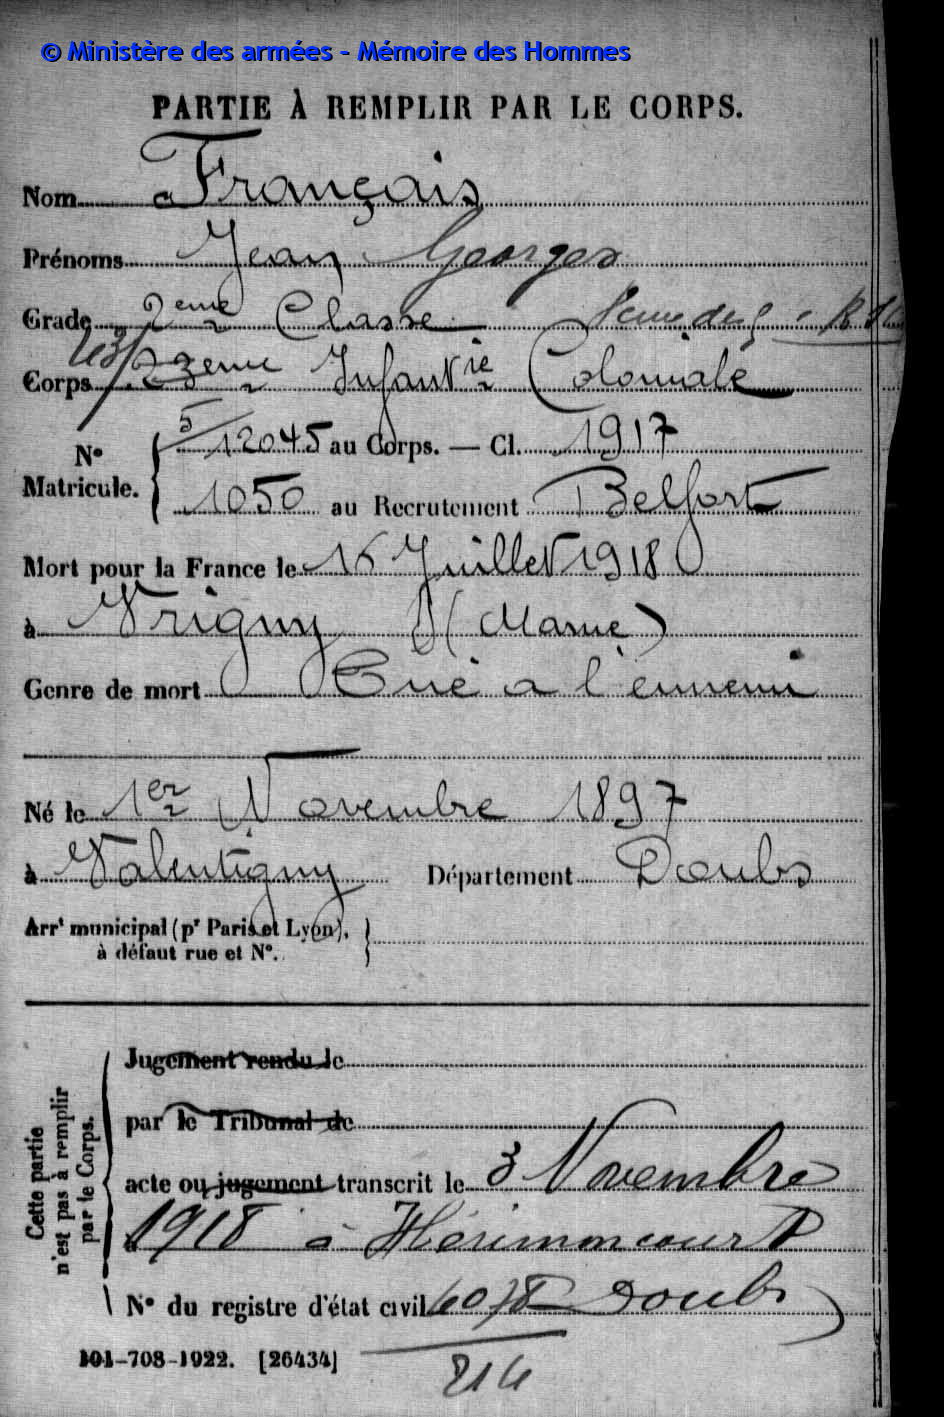 © Ministère des armées - Mémoire des Hommes
PARTIE À REMPLIR PAR LE CORPS.
Nom Français
Prénoms Jean Georges
Grade 2ème Classe
Corps 23ème Infantrie Coloniale
N° Matricule. 5/12045 au Corps. — Cl. 1917
1050 au Recrutement Belfort
Mort pour la France le 16 Juillet 1918
à Vrigny (Marne)
Genre de mort Tué à l'ennemi
Né le 1er Novembre 1897
à Valentigny Département Doubs
Arrt municipal (pr Paris et Lyon),
à défaut rue et N°.
Cette partie
n'est pas à remplir
par le Corps.
Jugement rendu le
par le Tribunal de
acte ou jugement transcrit le 3 Novembre
1918 à Hérimoncourt
N° du registre d'état civil Doubs
101-708-1922. [26434]